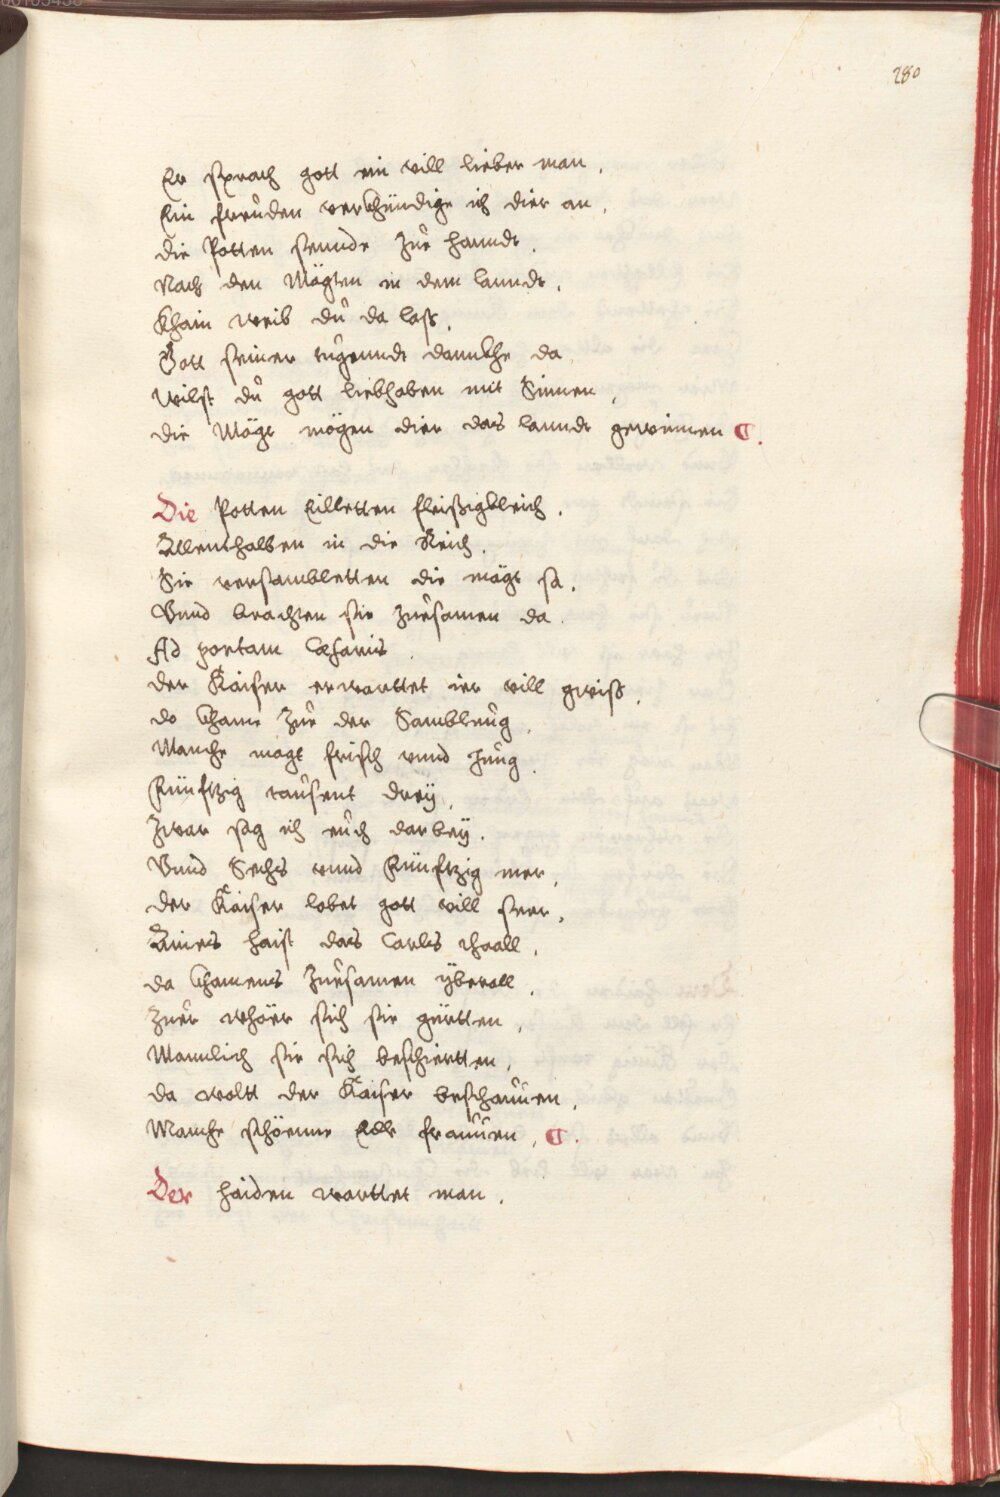 280
Er sprach gott ein vill lieber man.
Ein freuden verkhündige ich dier an.
die Potten sennde zue hannde.
Nach den Mägten in dem lannde.
Khain weib du da lass.
Gott seiner tugennde dannkhe da
Wilst du gott liebhaben mit Sinnen,
die Mägt mögen dier das lanndt gewinnen.
Die Potten Eilletten fleissigkleich.
Allenthalben in die Reich.
Sie versambletten die mägt sa.
Vnnd brachten sie zuesamen da.
Ad portam Cæsaris.
der Kaiser erwarttet ier vill gwiss.
do khame zue der Samblung,
Manche magt frisch vnnd Jung.
Fünfftzig tausent drey,
Zwar sag ich euch darbey.
Vnnd Sechs vnnd Fünfftzig mer,
der Kaiser lobet gott vill seer,
Aines haist das Carles thaall,
da khamens zuesamen überall,
Zuer whöer sich sie gürtten,
Mannlich sie sich beschiertten,
da woltt der Kaiser beschauuen,
Manche schöenne Edle frauuen.
Der haiden warttet man.